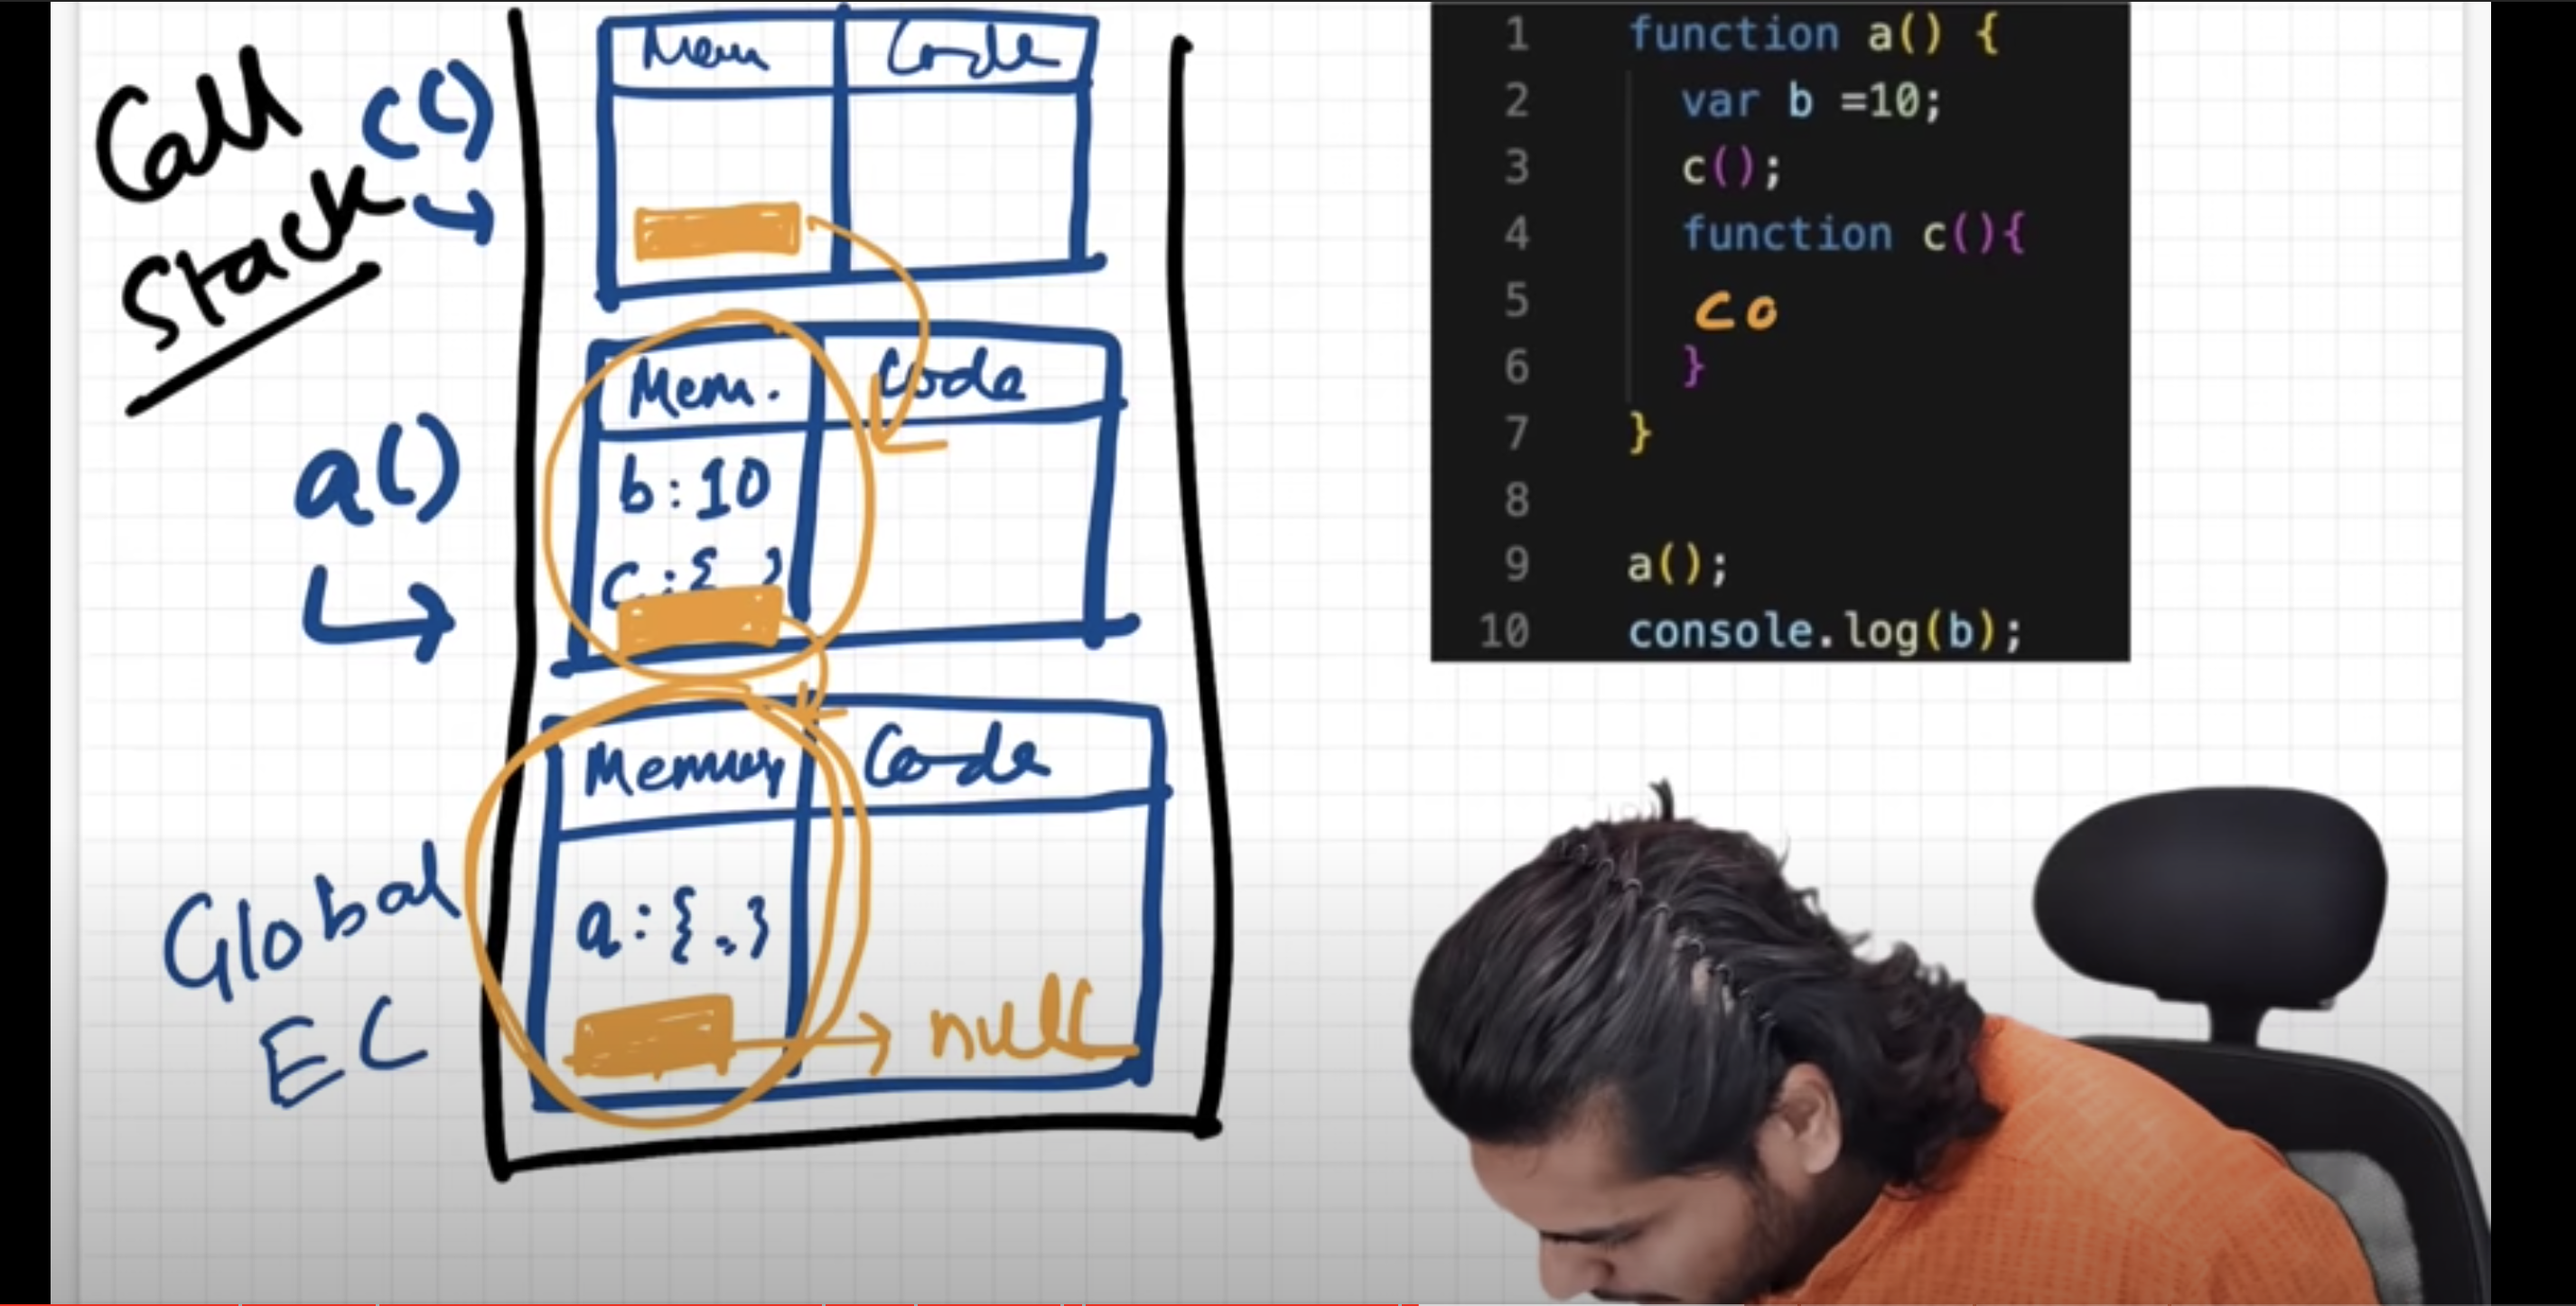 Call
Stack
c()
Mem
Code
a()
Mem.
Code
b:10
c:{ }
Global
EC
Memory
Code
a:{.,}
null
1 function a() {
2 var b =10;
3 c();
4 function c(){
5 co
6 }
7 }
8
9 a();
10 console.log(b);